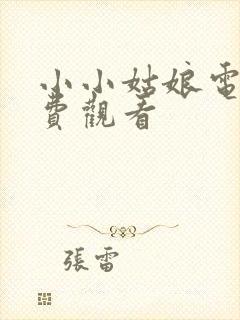 小小姑娘電
費觀看
張雷